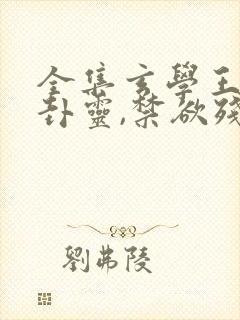 全集玄學王
卦靈,禁欲殘
劉弗陵